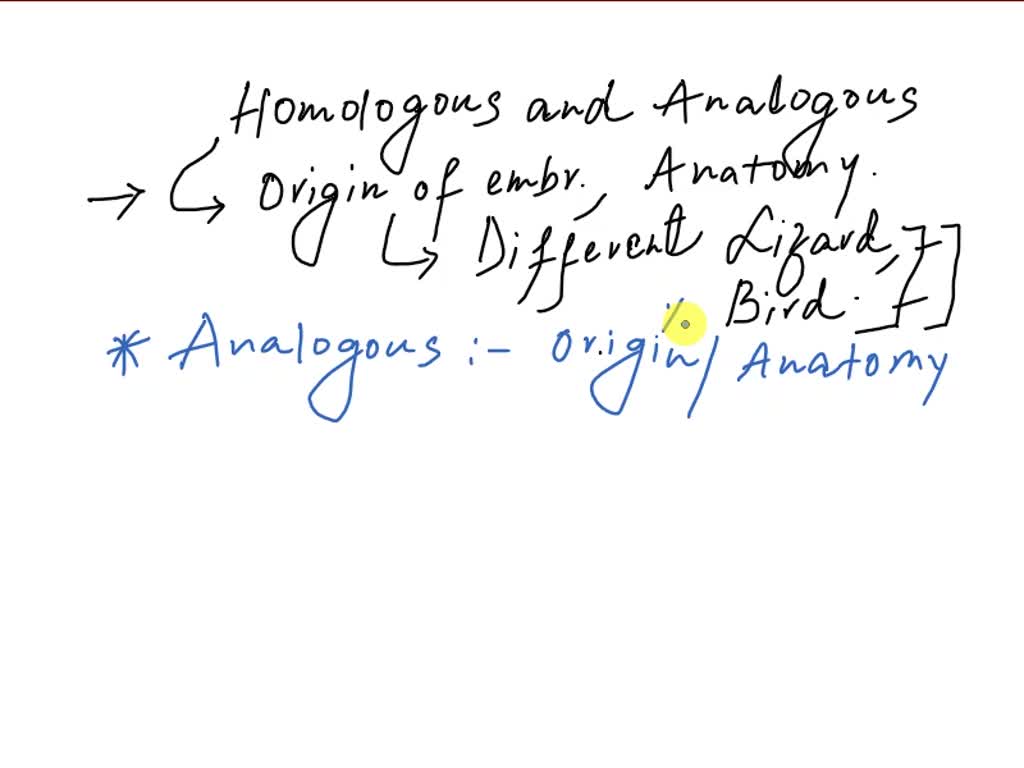 Homologous and Analogous
→ ↳ Origin of embr., Anatomy.
↳ Different Lizard,
Bird.
* Analogous :- Origin/ Anatomy